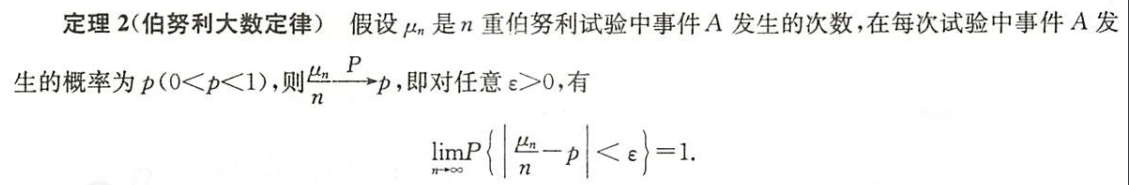 定理 2(伯努利大数定律) 假设 μₙ 是 n 重伯努利试验中事件 A 发生的次数,在每次试验中事件 A 发
生的概率为 p(0<p<1),则 μₙ/n —P→ p,即对任意 ε>0,有
lim_{n→∞} P{ | μₙ/n − p | < ε } = 1.